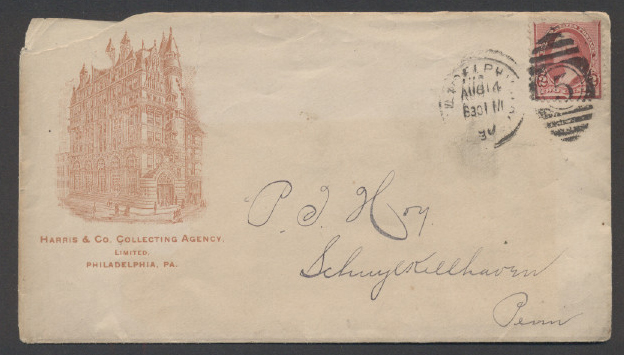 HARRIS & CO. COLLECTING AGENCY,
LIMITED.
PHILADELPHIA, PA.
AUG 14
90
P. I. Hoy.
Schuylkillhaven
Penn